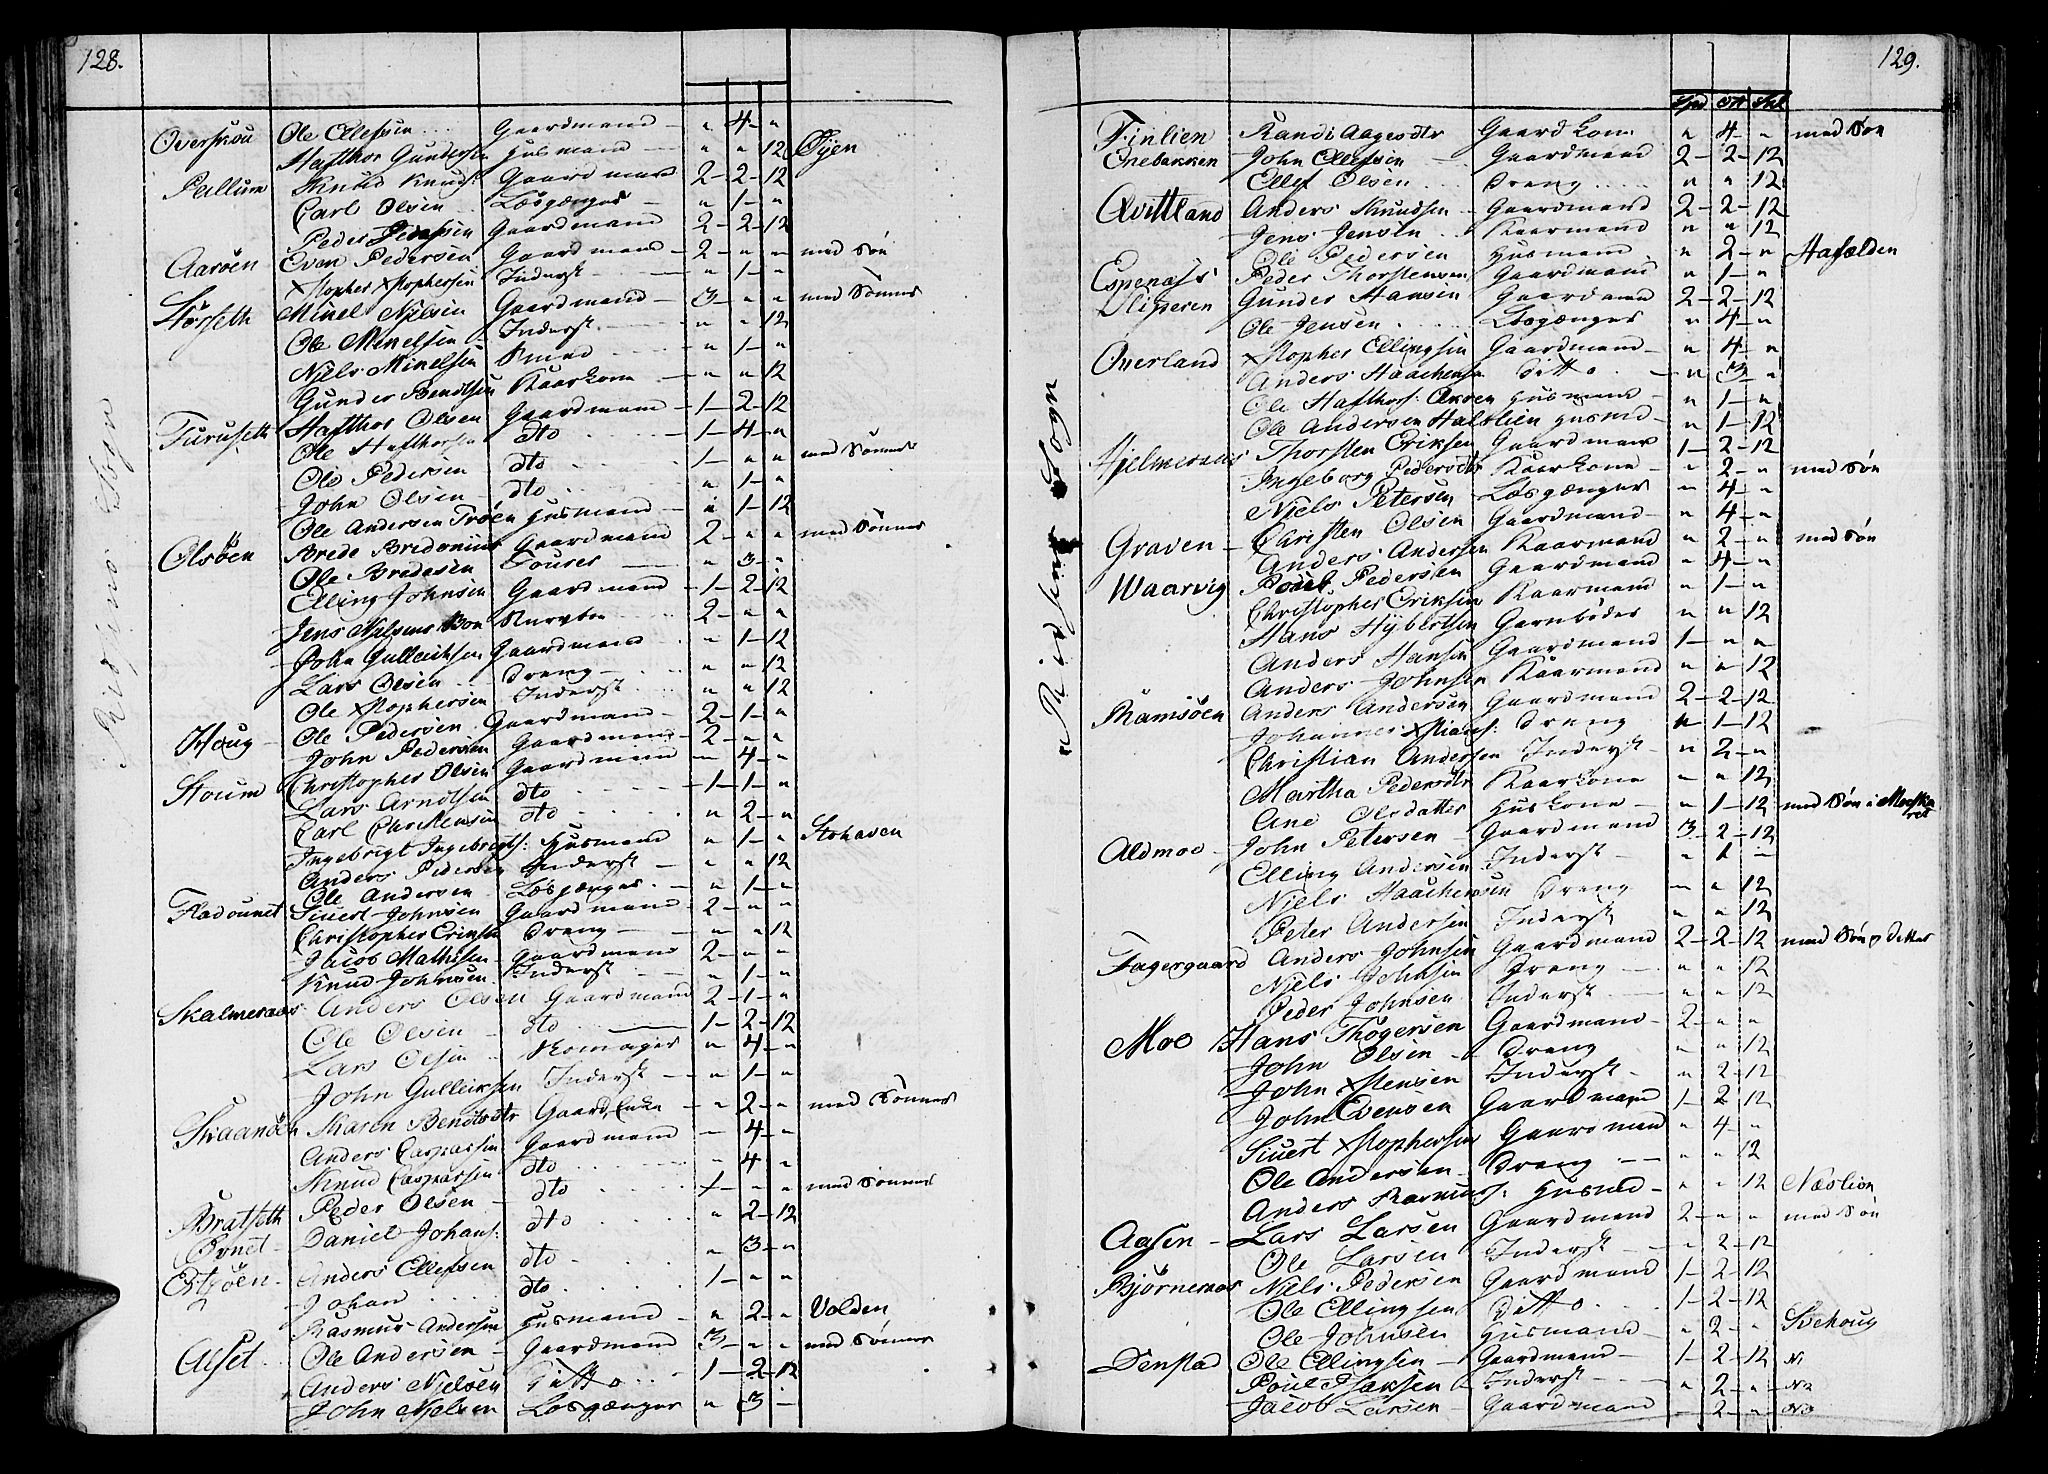 128.
Ridsens Sogn
Overskou Ole Ellefsen Gaardmand " 4 "
Hafthor Gundersen Husmand " " 12 Øyen
Pallum Knud Knuds: Gaardmand 2 2 12
Carl Olsen Løsgænger " 1 "
Peder Pedersen Gaardmand 2 2 12
Aarøen Even Pedersen Gaardmand 2 " " med Søn
Xstopher Xstophersen Inderst " 1 "
Størseth Mikel Njelsen Gaardmand 3 " " med Sønner
Ole Mikelsen Inderst " " 12
Niels Mikelsen Smed " 1 "
Gunder Bendtsen Kaarkone " " 12
Furuseth Hafthor Olsen Gaardmand 1 2 12
Ole Hafthorsen dto 1 4 "
Ole Pedersen dto 1 " " med Sønner
John Olsen dto " 1 "
Ole Andersen Trøen Husmand " 1 12
Olsøen Brede Bredenius Gaardmand 2 " " med Sønner
Ole Bredesen Fourer " 3 "
Elling Johnsen Gaardmand 1 2 12
Jens Njelsens Boe 2 " "
John Gulleiksen Gaardmand " 1 12
Lars Olsen Dreng " " 12
Ole Xstophersen Inderst " " 12
Houg Ole Pedersen Gaardmand 2 1 "
John Pedersen Gaardmand 2 " "
Stoum Christopher Olsen Gaardmand " 4 "
Lars Arndtsen dto 1 1 "
Carl Christensen dto " 2 "
Ingebrigt Ingebrigts: Husmand " 1 " Stohaven
Anders Pedersen Inderst " " 12
Ole Andersen Løsgænger " 1 "
Fladsunet Siuert Johnsen Gaardmand 2 " "
Christopher Eriksen Dreng " " 12
Jacob Mathisen Gaardmand 2 " "
Knud Johnsen Inderst " 1 "
Skalmeraas Anders Olsen Gaardmand 2 1 "
Ole Olsen dto 1 2 12
Lars Olsen Skomager " 4 "
John Gulleiksen Inderst " 1 "
Skaanøen Karen Bendtsdtr Gaard Enke " 2 " med Sønner
Anders Caspersen Gaardmand " 4 "
Knud Caspersen dto " 4 "
Bratseth Peder Olsen dto 1 " " med Sønner
Øvnet Daniel Johans: dto " 2 12
Ørtsøen Anders Ellefsen dto " 3 "
Johan dto 1 " "
Rasmus Andersen Husmand " 2 " Volden
Alset Ole Andersen Gaardmand 3 " " med Sønner
Anders Njelsen Ditto 1 2 12
John Njelsen Løsgænger " 3 "
129.
Ridsens Sogn
Spd Ort Skl
Finlien Randi Aagesdtr Gaardkone " 4 " med Søn
Enebakken John Ellefsen Gaardmand 2 2 12
Ellef Olsen Dreng " " 12
Qvittland Anders Knudsen Gaardmand 2 2 12
Jens Jensen Kaarmand " " 12
Ole Pedersen Husmand " 2 " Hafælden
Espenæss Peder Thorstensen Gaardmand " 1 "
Vliperen Gunder Hansen Gaardmand 2 2 12
Ole Jensen Løsgænger " 4 "
Overland Xstopher Ellingsen Gaardmand " 4 "
Anders Haachensen Ditto " 3 "
Ole Hafthors: Øksøen Husmand " 1 "
Ole Andersen Halslien Husmd " 1 12
Hjelmeraas Thorsten Eriksen Gaardmand 1 2 12
Ingeborg Pedersdtr Kaarkone " 2 " med Søn
Njels Petersen Løsgænger " 4 "
Graven Christen Olsen Gaardmand " 4 "
Anders Andersen Kaarmand " 2 " med Søn
Waarvig Poul Pedersen Gaardmand " 4 "
Christopher Eriksen Kaarmand " 1 "
Hans Hybertsen Garnbøder " " 12
Anders Hansen Gaardmand 1 " "
Anders Johnsen Kaarmand " " 12
Ramsøen Anders Andersen Gaardmand 2 2 12
Johannes Xstians: Dreng " 1 12
Christian Andersen Inderst " 2 "
Martha Pedersdtr Kaarkone " " 12
Ane Olsdatter Huskone " 1 12 med Søn i
Aldmoe John Petersen Gaardmand 3 2 12
Elling Andersen Inderst " 1 "
Njels Haachensen Dreng " " 12
Peter Andersen Inderst " " 12
Fagergaard Anders Johnsen Gaardmand 2 2 12 med Søn og Datter
Njels Johnsen Dreng " " 12
Peder Johnsen Inderst " " 12
Moe Hans Thøgersen Gaardmand 2 " "
John Olsen Dreng " " 12
John Xstensen Inderst " 2 12
John Evensen Gaardmand 1 2 12
Siuert Xstophersen Gaardmand " 4 "
Ole Andersen Dreng " " 12
Anders Rasmus: Husmd " " 12 Næslien
Aasen Lars Larsen Gaardmand 2 " " med Søn
Ole Larsen Inderst " 2 12
Bjørneraas Niels Pedersen Gaardmand 1 2 12
Ole Ellingsen Ditto 1 2 12
Ole Johnsen Husmand " 2 " Svehoug
Denstad Ole Ellingsen Gaardmand 1 2 12 N1
Poul Isaksen Inderst " 2 " N2
Jacob Larsen Gaardmand " 2 " N3